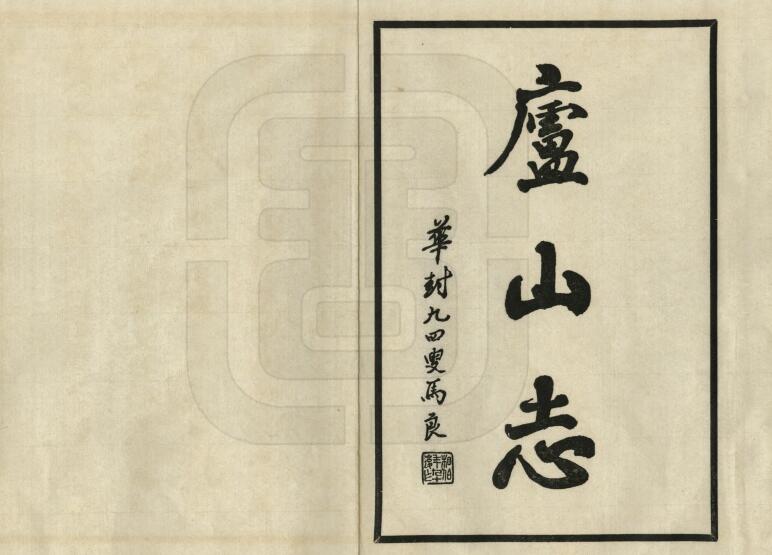 廬山志
華封九四叟馬良